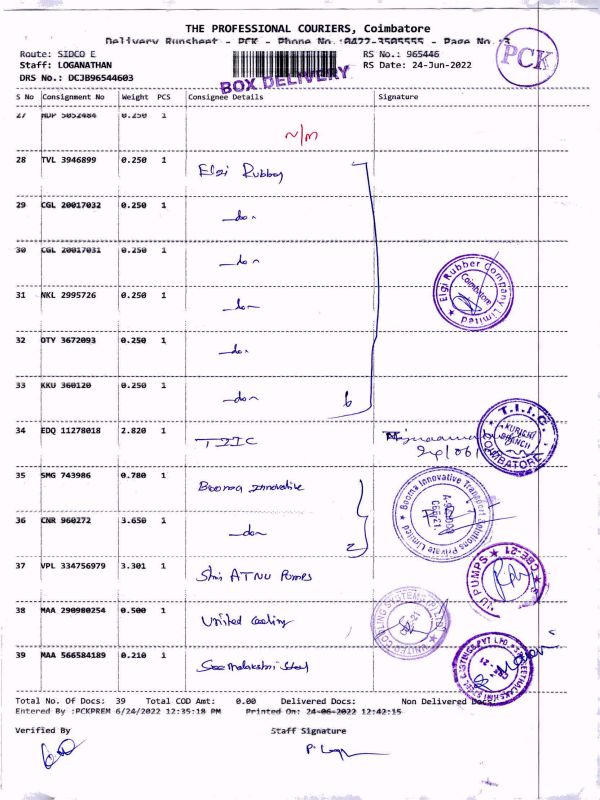 THE PROFESSIONAL COURIERS, Coimbatore
Delivery Runsheet - PCK - Phone No.:0422-3505555 - Page No.:3
Route: SIDCO E RS No.: 965446
Staff: LOGANATHAN RS Date: 24-Jun-2022
DRS No.: DCJB96544603
BOX DELIVERY
PCK
S No Consignment No Weight PCS Consignee Details Signature
27 NDP 5052484 0.250 1
N/M
28 TVL 3946899 0.250 1 Elgi Rubber
29 CGL 20017032 0.250 1 -do-
30 CGL 20017031 0.250 1 -do-
Elgi Rubber Company Limited Coimbatore
31 NKL 2995726 0.250 1 -do-
32 OTY 3672093 0.250 1 -do-
33 KKU 360120 0.250 1 -do- 6
34 EDQ 11278018 2.820 1 TIIC
T.I.I.C. KURICHI BRANCH COIMBATORE
35 SMG 743986 0.780 1 Booma Innovative
36 CNR 960272 3.650 1 -do- 2
Booma Innovative Transport Solutions Private Limited
37 VPL 334756979 3.301 1 Shri ATNU Pumps
U PUMPS CBE-21
38 MAA 290980254 0.500 1 United Cooling
UNITED COOLING SYSTEMS (P) LTD
39 MAA 566584189 0.210 1
Total No. Of Docs: 39 Total COD Amt: 0.00 Delivered Docs: Non Delivered Docs:
Entered By :PCKPREM 6/24/2022 12:35:18 PM Printed On: 24-06-2022 12:42:15
Verified By Staff Signature